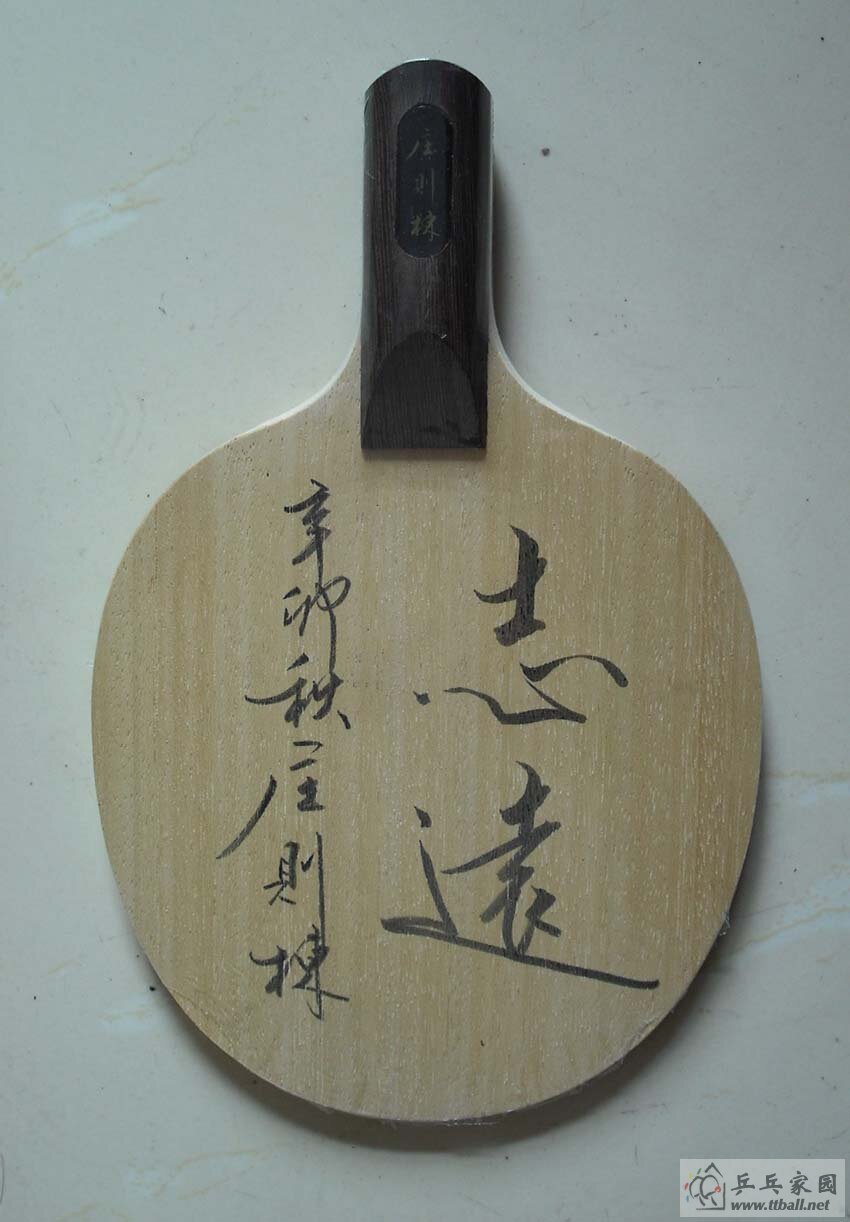 庄則棟
志遠
辛卯秋庄則棟
乒乓家园
www.ttball.net